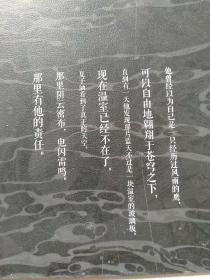 他曾经以为自己是一只经历过风雨的鹰，
可以自由地翱翔于苍穹之下，
直到有一天他发现那片蓝天不过是一块温室的玻璃板。
现在温室已经不在了，
夏予涵看到了真正的天空。
那里阴云密布，电闪雷鸣，
那里有他的责任。